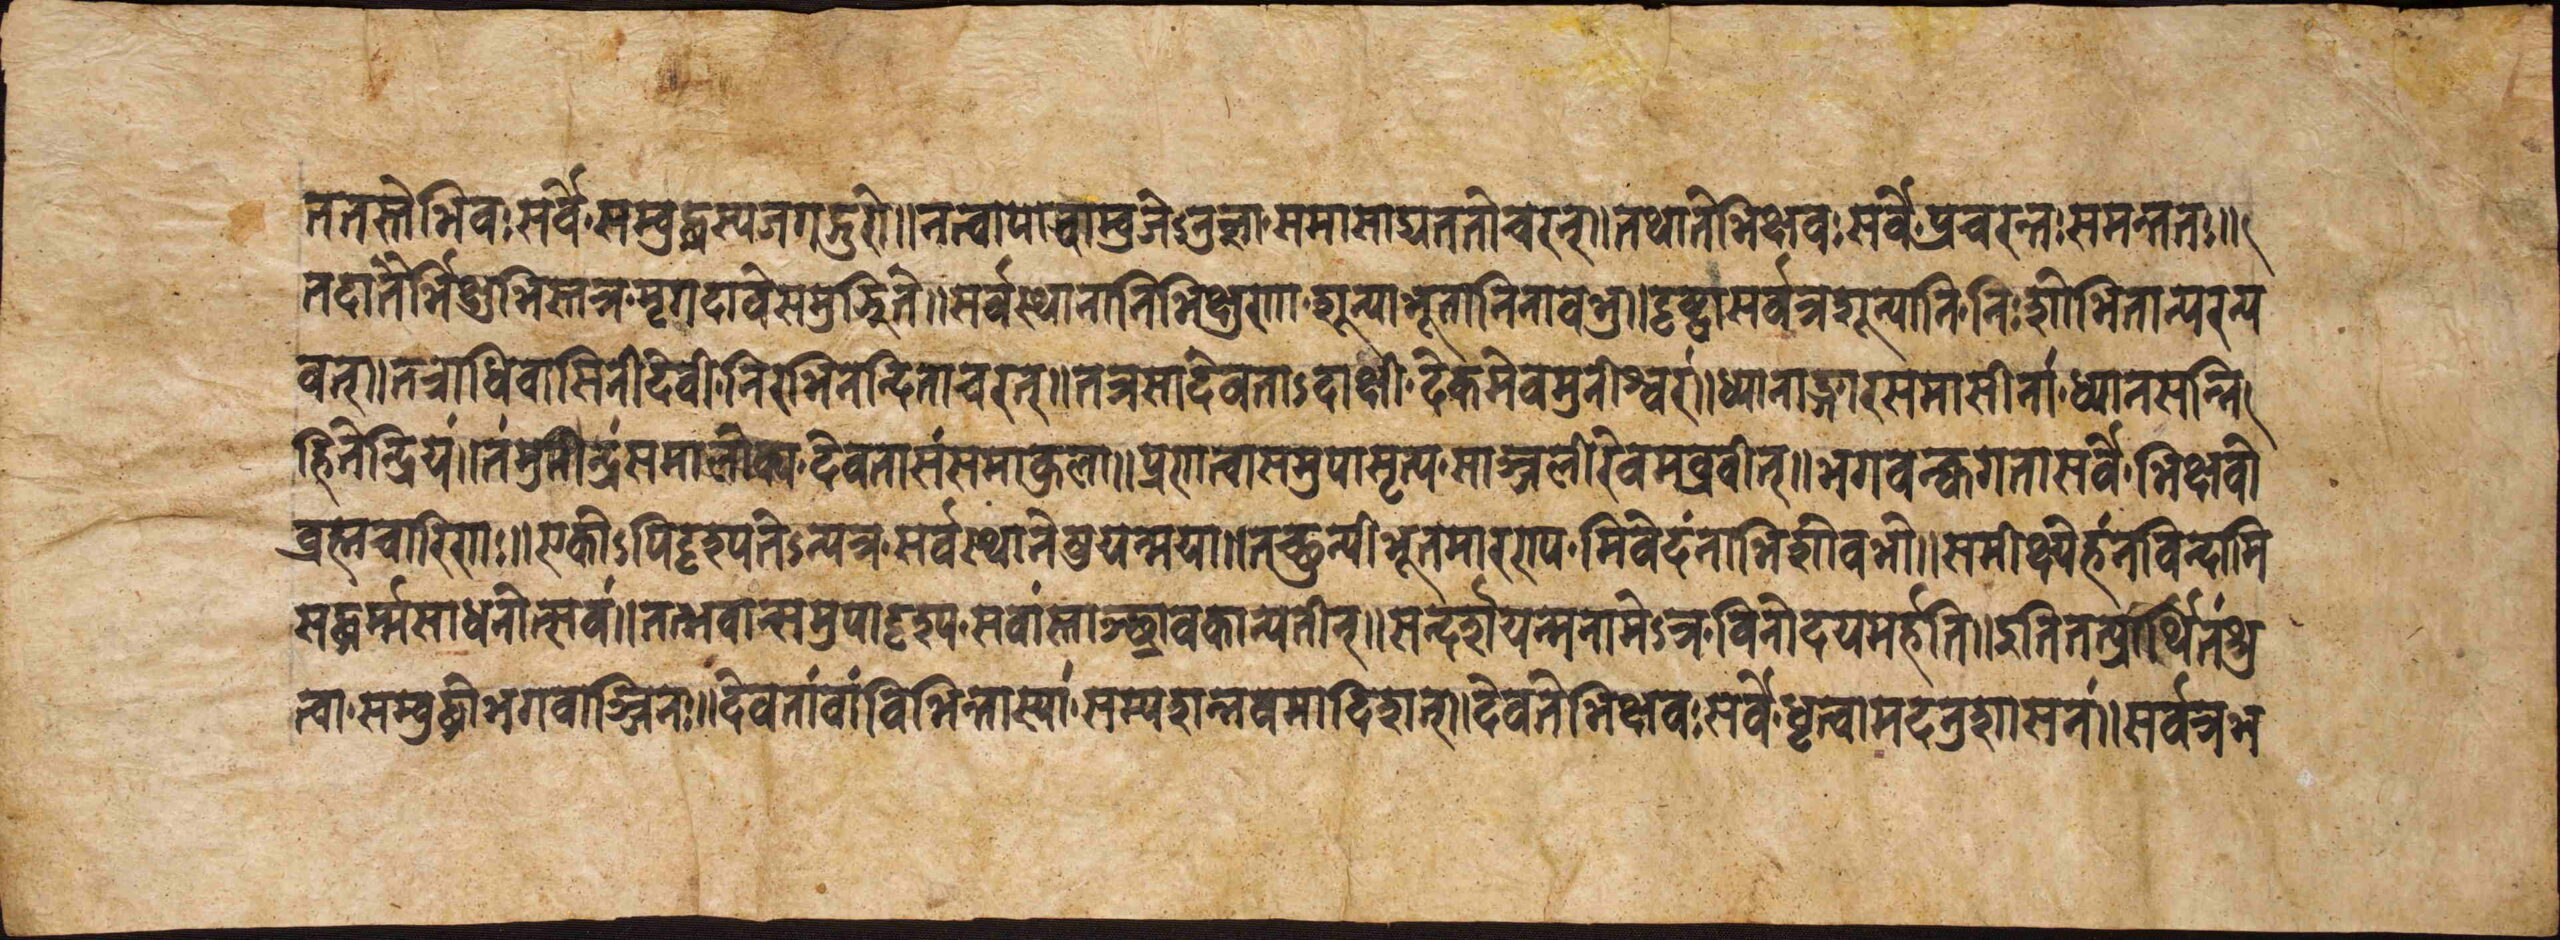 ततस्ते भिवः सर्वे सम्बुद्धस्य जगद्गुरोः॥ नत्वा पादाम्बुजेऽनुज्ञा समासाद्य ततोचरन्॥ तथा ते भिक्षवः सर्वे प्रचरन्तः समन्ततः॥
तदा तैर्भिक्षुभिस्तत्र मृगदावे समुज्झिते॥ सर्वस्थानानि भिक्षुणा शून्याभूतानि नावभु॥ दृष्ट्वा सर्वत्र शून्यानि निःशोभितान्यरन्य
वत्॥ तत्राधिवासिनी देवी निरभिनन्दिताचरत्॥ तत्र सा देवताऽद्राक्षी देकमेव मुनीश्वरं॥ ध्यानागारसमासीनां ध्यानसन्नि
हितेन्द्रियं॥ तं मुनीन्द्रं समालोक्य देवता सं समाकुला॥ प्रणत्वा समुपासृत्य साञ्जलीरेवमव्रवीत्॥ भगवन्क्व गता सर्वे भिक्षवो
व्रह्मचारिणः॥ एकोऽपि दृश्यतेऽन्यत्र सर्वस्थानेष्वयन्मया॥ तच्छुन्यीभूतमारण्य मिवेदं नाभिशोवभौ॥ समीक्ष्येहं न विन्दामि
सद्धर्म्मसाधनोत्सवं॥ तद्भवान्समुपादृश्य सर्वांस्ताञ्छ्रावकान्यतीन्॥ सन्दर्शयन्मनामेऽत्र विनोदयमर्हति॥ इति तत्प्रार्थितं श्रु
त्वा सम्बुद्धो भगवाञ्जिनः॥ देवतां वां विभिन्तास्यां सम्पशन्नवमादिशत्॥ देवते भिक्षवः सर्वे धृत्वा मदनुशासनं॥ सर्वत्र भ